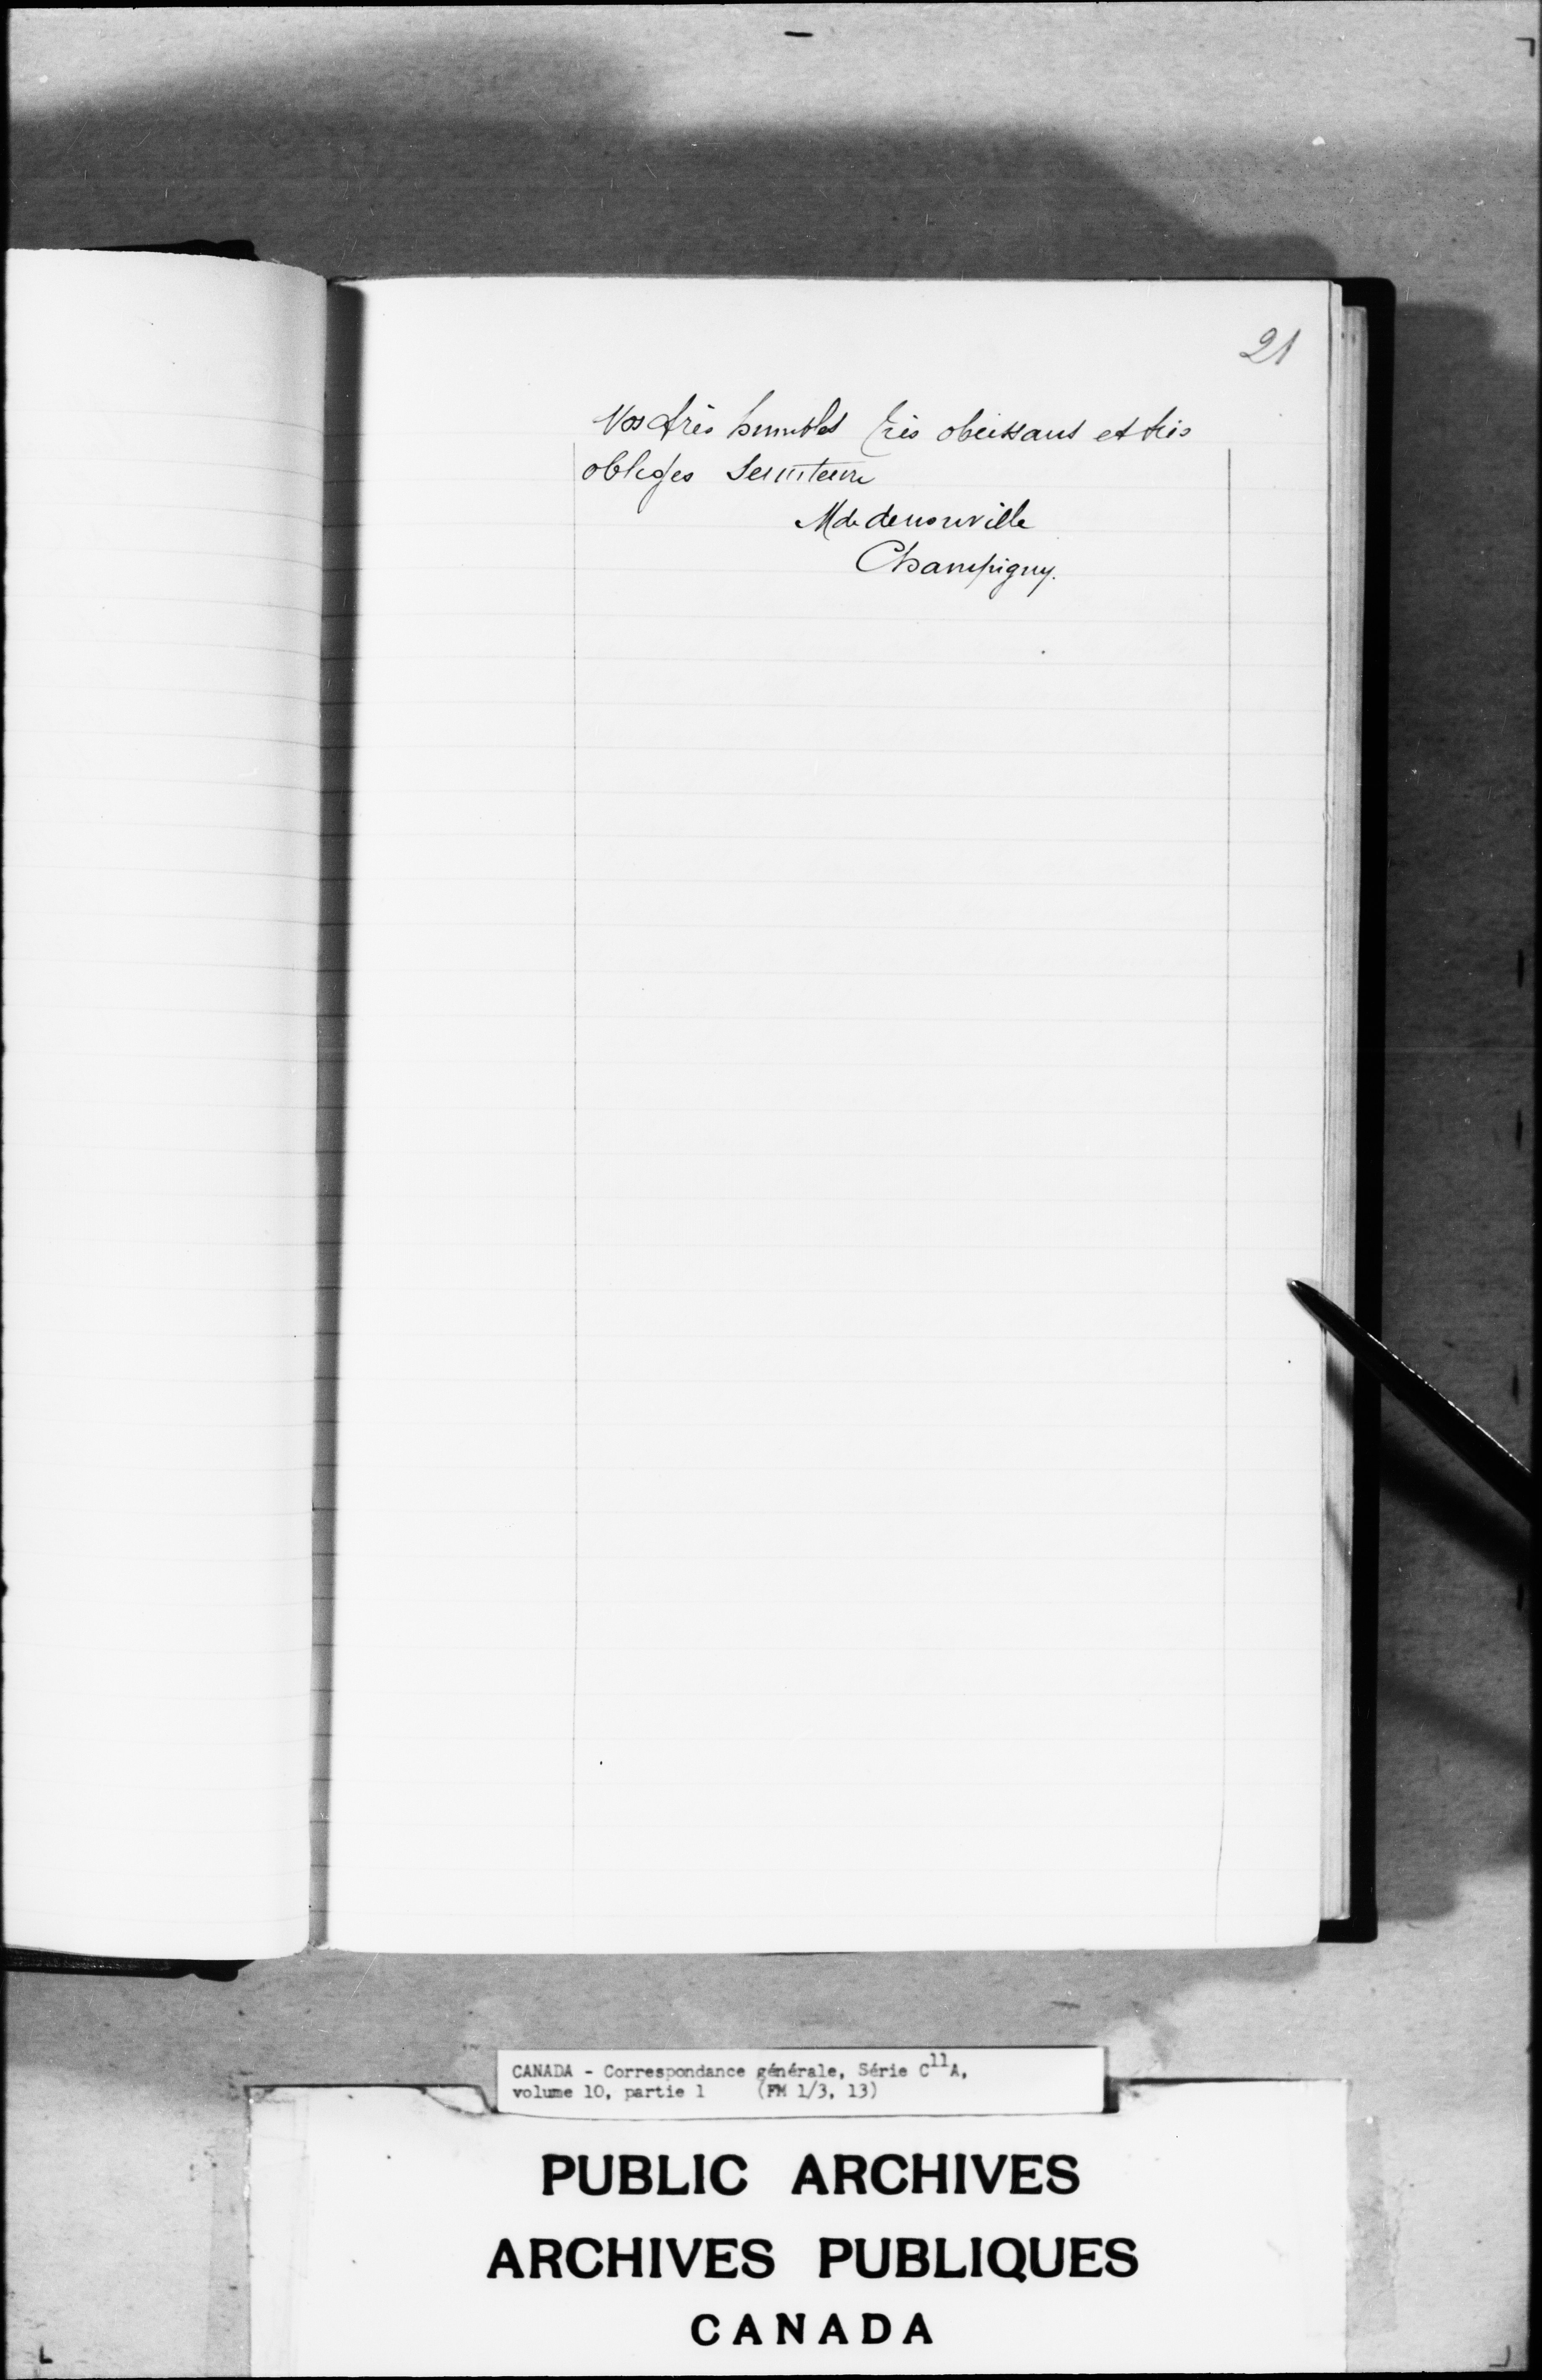 21
Vos très humbles très obeissans et très
obliges Serviteurs
M de denonville
Champigny.
CANADA - Correspondance générale, Série C11A,
volume 10, partie 1 (FM 1/3, 13)
PUBLIC ARCHIVES
ARCHIVES PUBLIQUES
CANADA